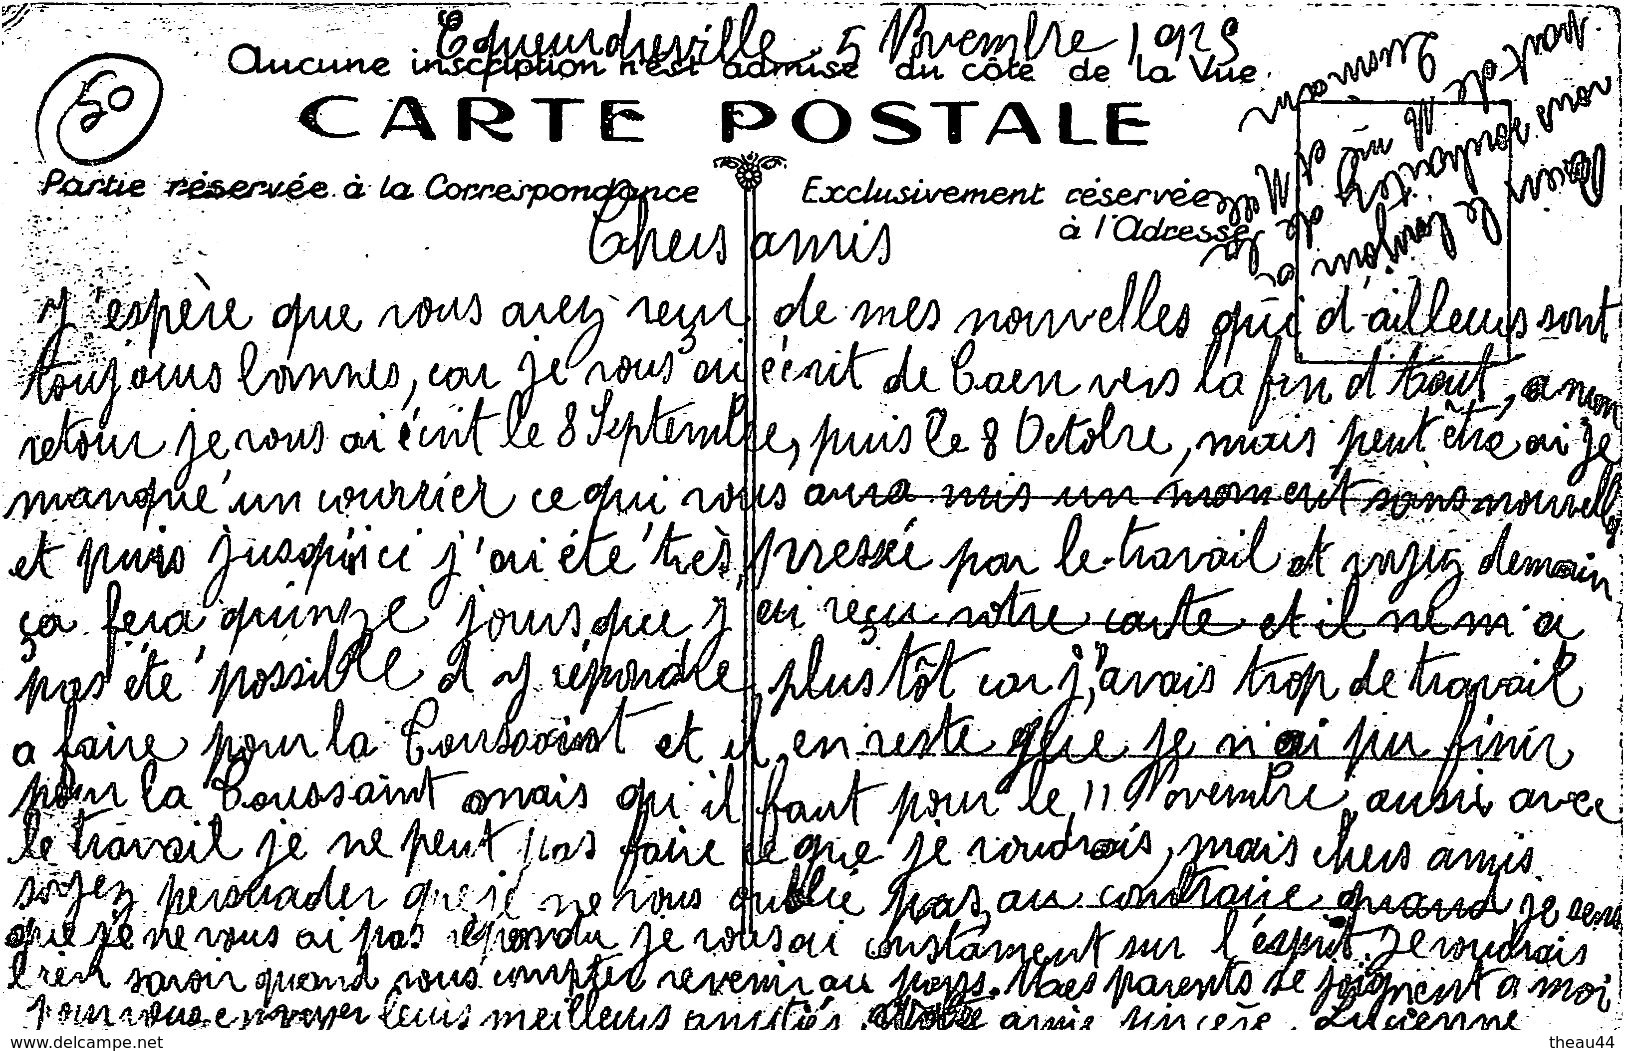 Equeurdreville 5 Novembre 1929
Aucune inscription n'est admise du côté de la Vue.
50
CARTE POSTALE
Partie réservée à la Correspondance
Exclusivement réservée
à l'Adresse
Bien le bonjour de
vous souhaite
part de M et Me
Chers amis
J'espère que vous avez reçu de mes nouvelles qui d'ailleurs sont
toujours bonnes, car je vous ai écrit de Caen vers la fin d'Aout, a mon
retour je vous ai écrit le 8 Septembre, puis le 8 Octobre, mais peut être ai je
manqué un courrier ce qui vous aura mis un moment sans nouvelles
et puis jusqu'ici j'ai été très pressée par le travail et voyez demain
ça fera quinze jours que j'ai reçu votre carte et il ne m'a
pas été possible d'y répondre plus tôt car j'avais trop de travail
a faire pour la Toussaint et il en reste que je n'ai pu finir
pour la Toussaint mais qu'il faut pour le 11 Novembre, aussi avec
le travail je ne peut pas faire ce que je voudrais, mais chers amis
soyez persuader que je ne vous oublie pas, au contraire quand je sens
que je ne vous ai pas répondu je vous ai constament sur l'esprit. Je voudrais
bien savoir quand vous compter revenir au pays. Mes parents se joignent a moi
pour vous envoyer leurs meilleurs amitiés. Votre amie sincère. Lucienne
www.delcampe.net
theau44